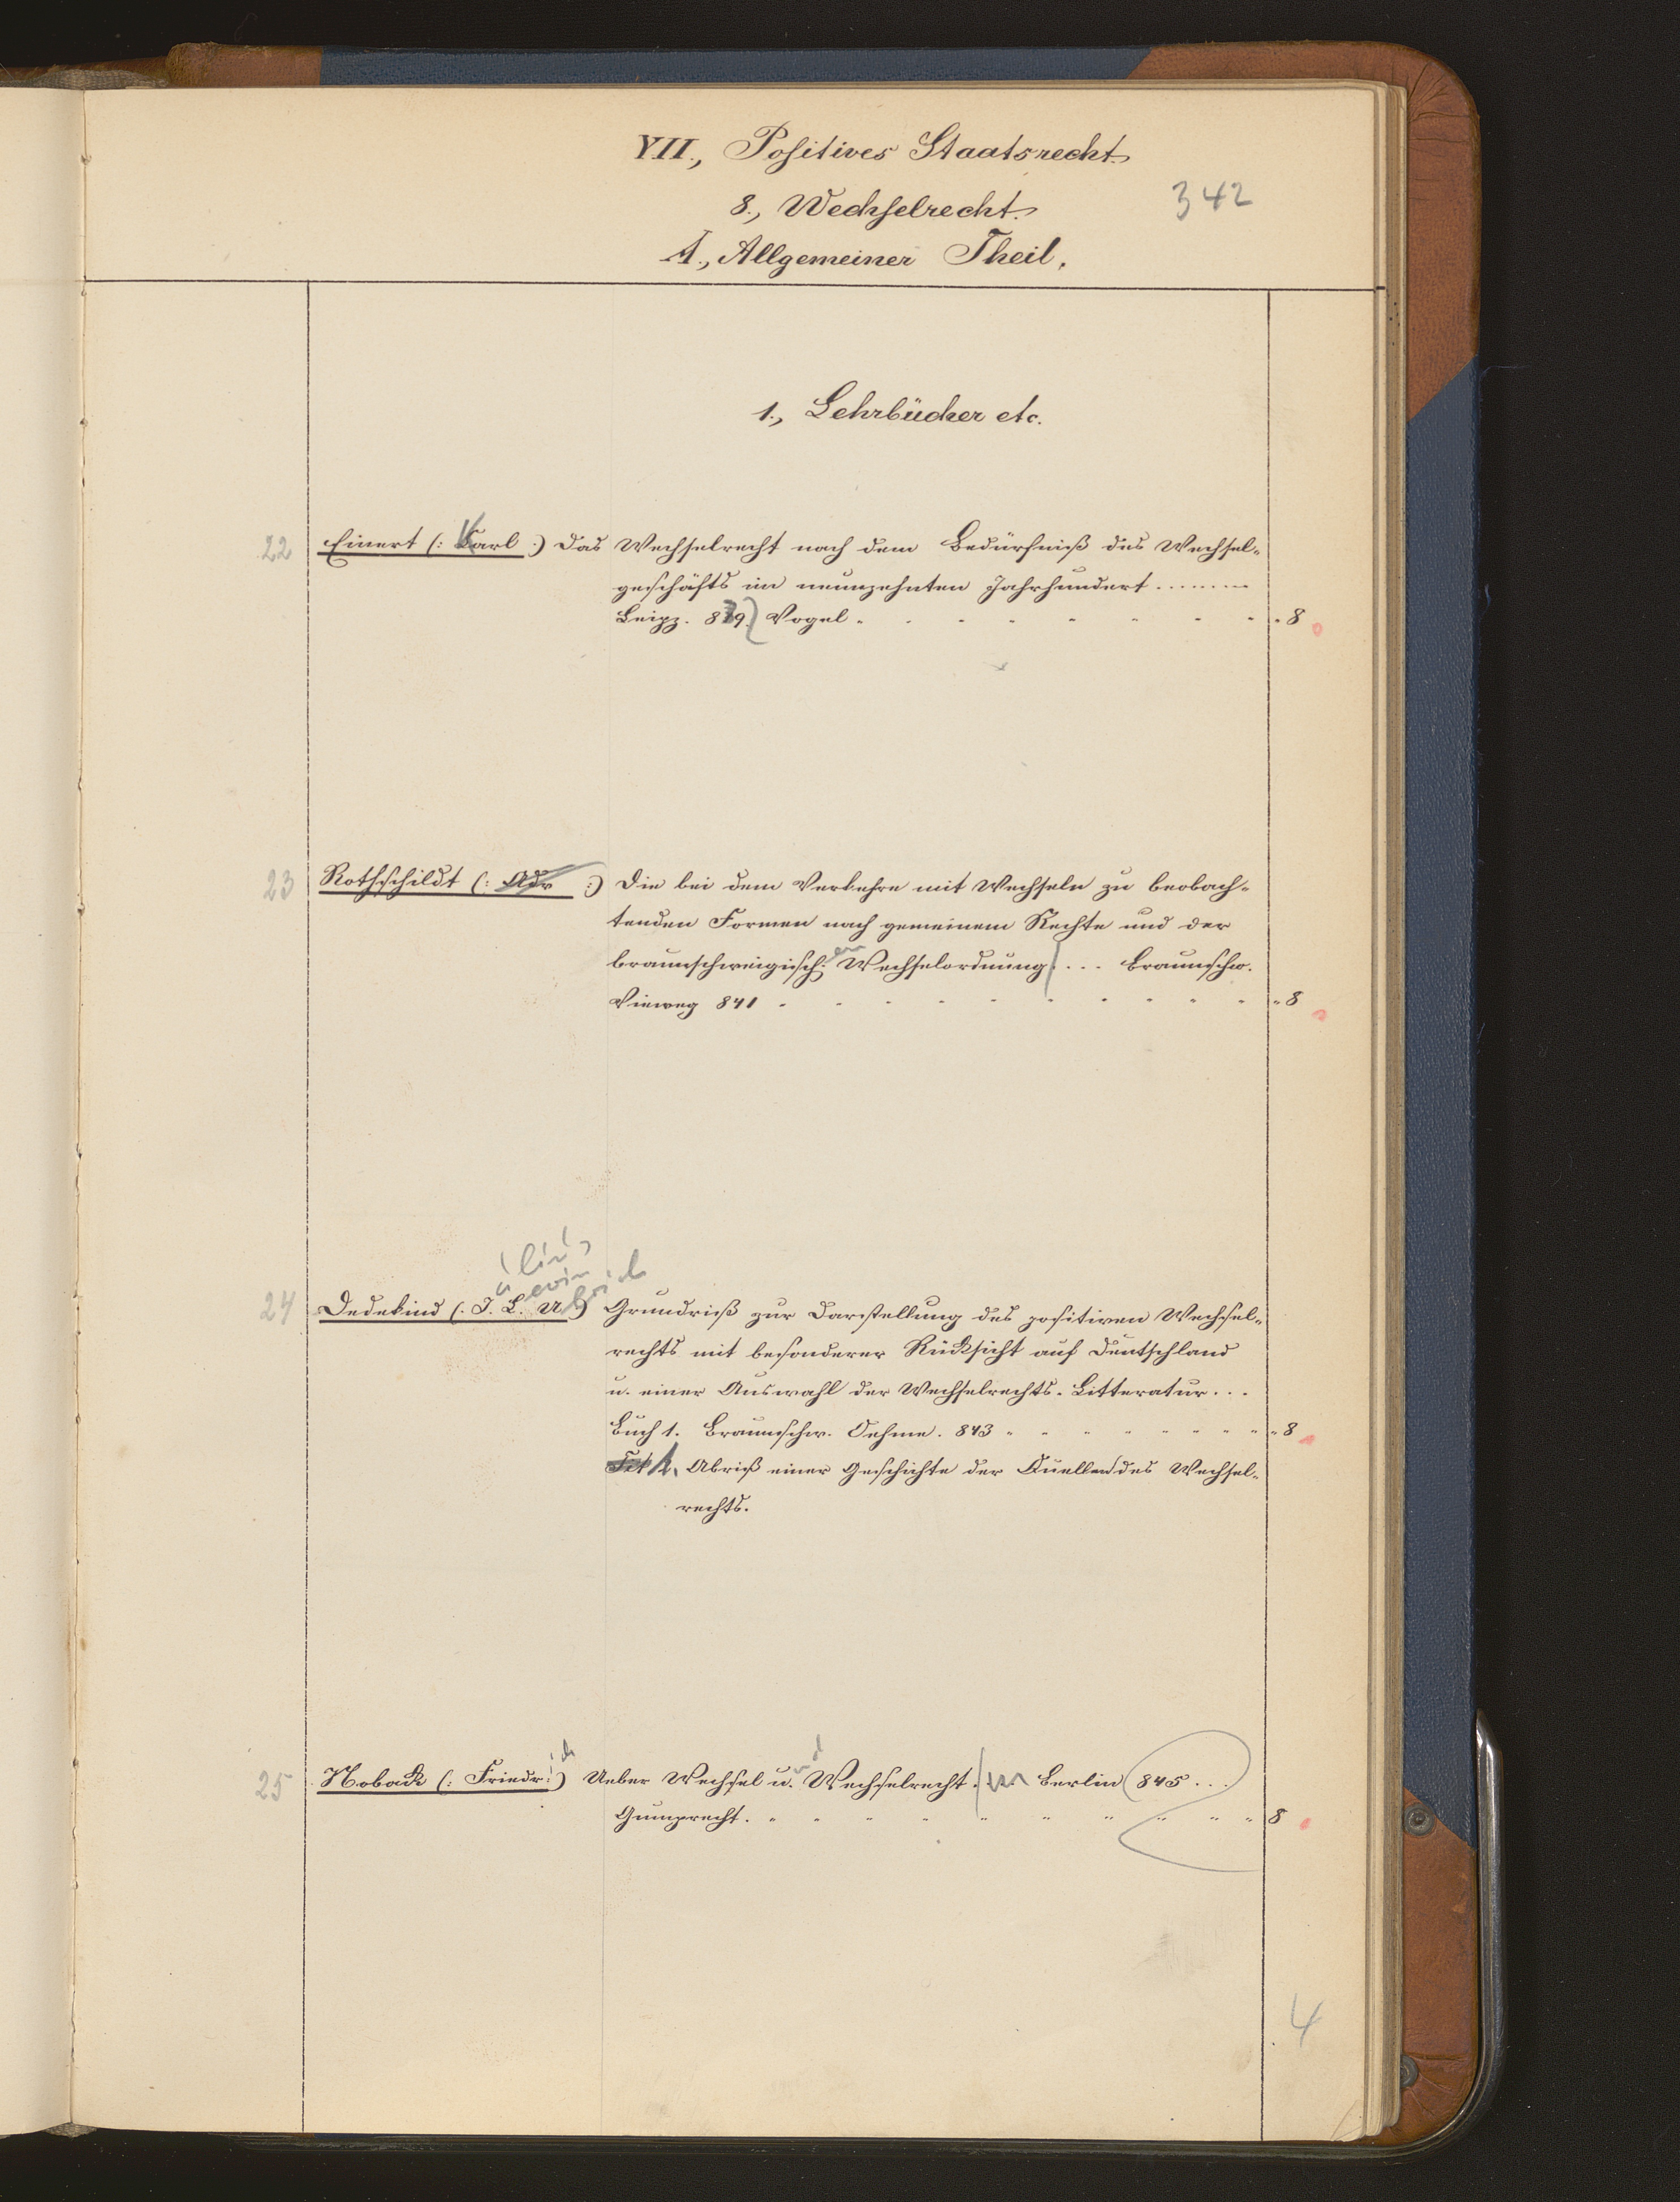 VII., Positives Staatsrecht.
342
8., Wechselrecht.
A., Allgemeiner Theil.
1., Lehrbücher etc.
22 Einert (: Karl :) Das Wechselrecht nach dem Bedürfniß des Wechsel-
geschäfts im neunzehnten Jahrhundert ........
Leipz. 839. Vogel " 8
23 Rothschildt (: Adr :) Die bei dem Verkehre mit Wechseln zu beobach-
tenden Formen nach gemeinem Rechte und der
braunschweigisch:en Wechselordnung ... Braunschw.
Vieweg 841 " 8
24 Dedekind (: J. L. U :) Grundriß zur Darstellung des positiven Wechsel-
rechts mit besonderer Rücksicht auf Deutschland
u. einer Auswahl der Wechselrechts-Litteratur...
Buch 1. Braunschw. Oehme. 843 " 8
1, Abriß einer Geschichte der Quellen des Wechsel-
rechts.
25 Noback (: Friedr: :) Ueber Wechsel u. Wechselrecht. Berlin 845...
Gumprecht. " 8
4